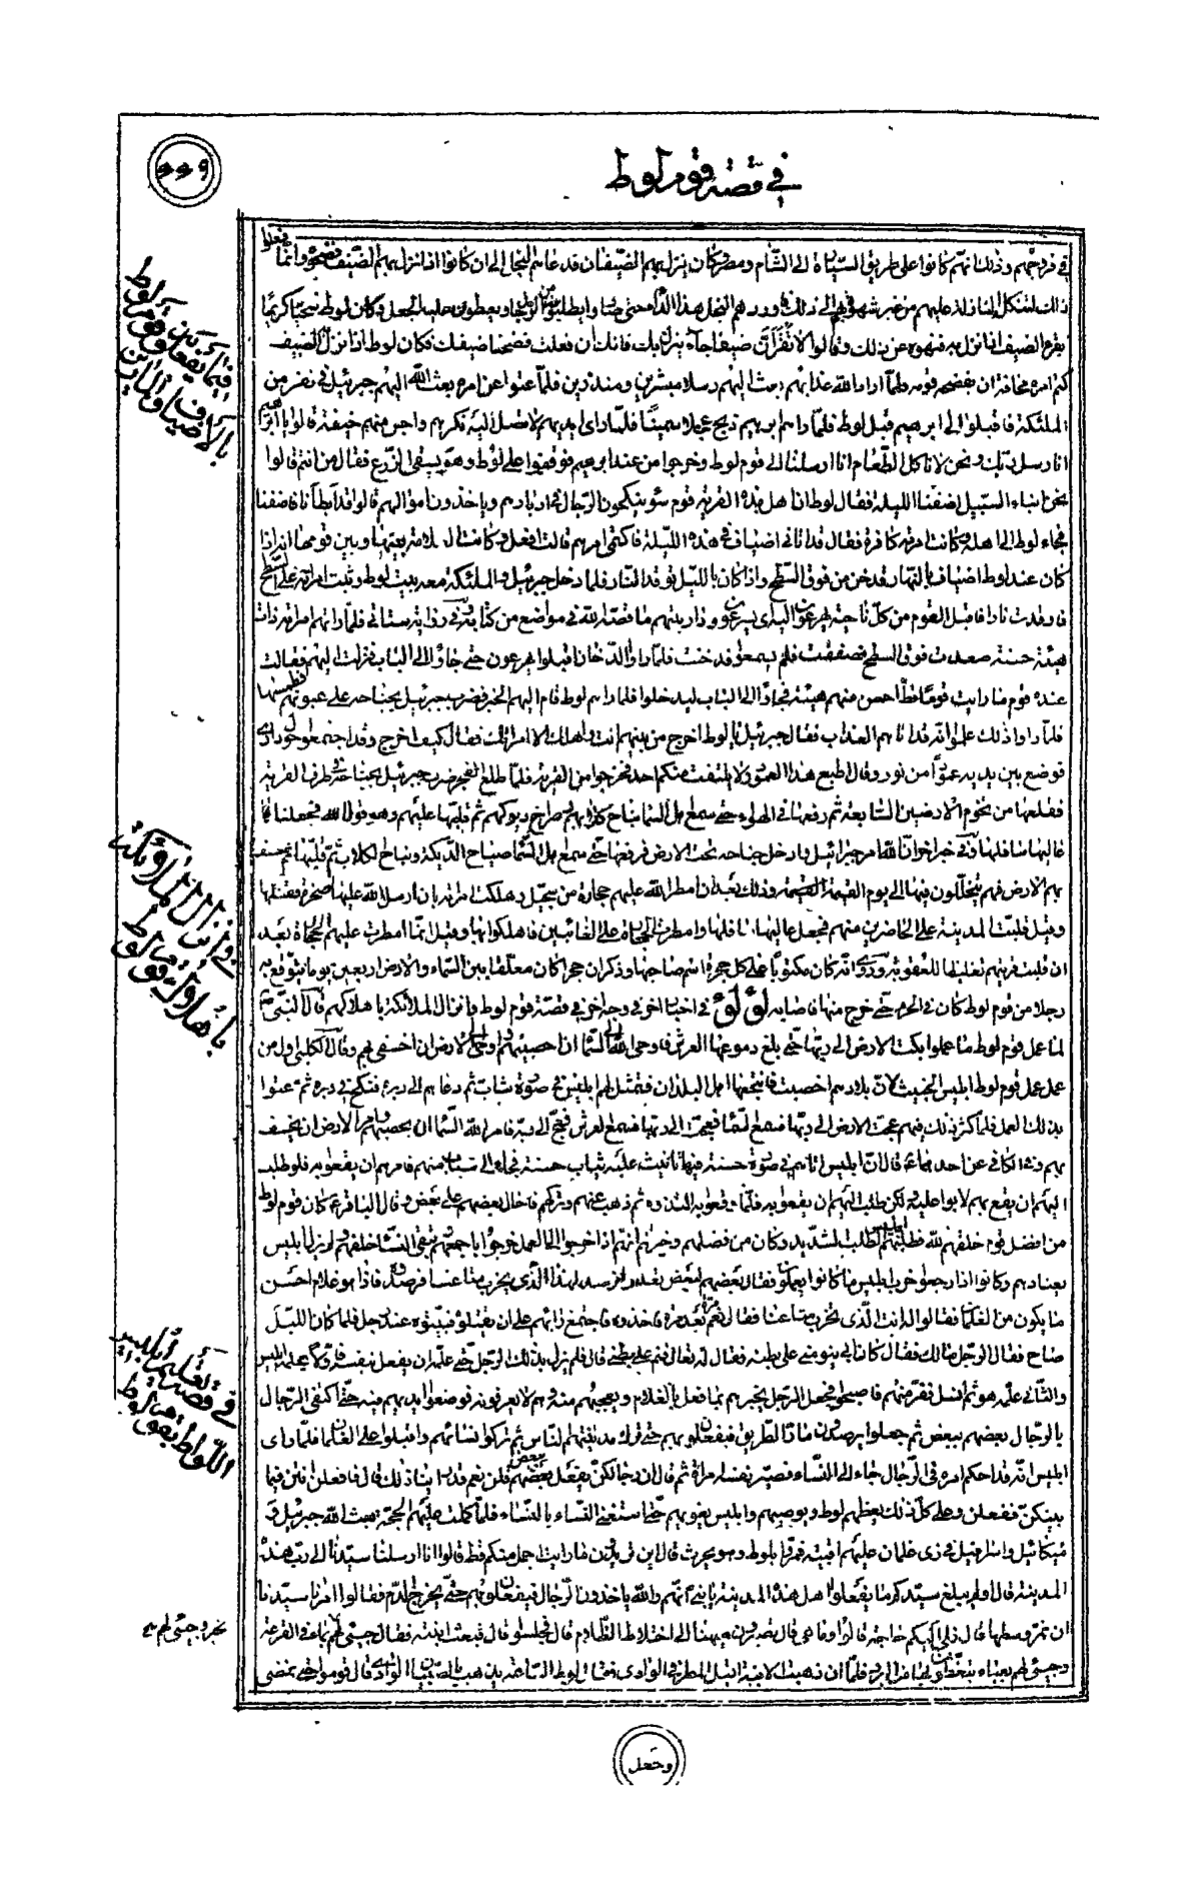 في قصة قوم لوط
في فروجهم وذلك انهم كانوا على طريق السيارة الى الشام ومصر وكان ينزل بهم الضيفان فدعاهم البخل الى ان كانوا اذا نزل بهم الضيف فضحوه وانما فعلوا
ذلك لتنكل النازلة عليهم من غير شهوة بهم الى ذلك فاوردهم البخل هذا الداء حتى صاروا يطلبونه من الرجال ويعطون عليه الجعل وكان لوط سخيا كريما
يقري الضيف اذا نزل به فنهوه عن ذلك وقالوا لا تقرين ضيفا جاء ينزل بك فانك ان فعلت فضحنا ضيفك فكان لوط اذا نزل به الضيف
كتم امره مخافة ان يفضحه قومه ولما اراد الله عذابهم بعث اليهم رسلا مبشرين ومنذرين فلما عتوا عن امره بعث الله اليهم جبرئيل في نفر من
الملائكة فاقبلوا الى ابرهيم قبل لوط فلما راهم ابرهيم ذبح عجلا سمينا فلما راى ايديهم لا تصل اليه نكرهم واوجس منهم خيفة قالوا يا ابرهيم
انا رسل ربك ونحن لا ناكل الطعام انا ارسلنا الى قوم لوط وخرجوا من عند ابرهيم فوقفوا على لوط وهو يسقي الزرع فقال من انتم قالوا
نحن ابناء السبيل اضفنا الليلة فقال لوط ان اهل هذه القرية قوم سوء ينكحون الرجال في ادبارهم وياخذون اموالهم قالوا قد ابطأنا فاضفنا
فجاء لوط الى اهله وكانت امرته كافرة فقال قد اتاني اضياف في هذه الليلة فاكتمي امرهم قالت افعل وكانت العلامة بينها وبين قومها انه اذا
كان عند لوط اضياف بالنهار تدخن من فوق السطح واذا كان بالليل توقد النار فلما دخل جبرئيل والملائكة معه بيت لوط وثبت امرأته على السطح
فاوقدت نارا فاقبل القوم من كل ناحية يهرعون اليه اي يسرعون ودار بينهم ما قصه الله في مواضع من كتابه وفي رواية
هيئة حسنة صعدت فوق السطح فصفقت فلم يسمعوا فدخنت فلما راوا الدخان اقبلوا يهرعون حتى جاؤا الى الباب فنزلت اليهم فقالت
عنده قوم ما رايت قوما قط احسن منهم هيئة فجاؤا الى الباب ليدخلوا فلما راهم لوط قام اليهم الخبر فضرب جبرئيل بجناحه على عيونهم فطمسها
فلما راوا ذلك علموا انه قد اتاهم العذاب فقال جبرئيل يا لوط اخرج من بينهم انت واهلك الا امراتك فقال كيف اخرج وقد اجتمعوا حول داري
فوضع بين يديه عمودا من نور وقال اتبع هذا العمود ولا يلتفت منكم احد فخرجوا من القرية فلما طلع الفجر ضرب جبرئيل بجناحه في طرف القرية
فقلعها من تخوم الارضين السابعة ثم رفعها في الهواء حتى سمع اهل السماء نباح كلابهم وصراخ ديوكهم ثم قلبها عليهم وهو قول الله فجعلنا
عاليها سافلها وفي خبر اخر ان الله امر جبرائيل فادخل جناحه تحت الارض فرفعها حتى سمع اهل السماء صياح الديكة ونباح الكلاب ثم قلبها ثم خسف
بهم الارض فهم يتجلجلون فيها الى يوم القيمة وذلك بعد ان امطر الله عليهم حجارة من سجيل وهلكت امرته بان ارسل الله عليها صخرة فقتلتها
وقيل قلبت المدينة على الحاضرين منهم فجعل عاليها سافلها وامطرت الحجارة على الغائبين فاهلكوا بها وقيل انما امطرت عليهم الحجارة بعد
ان قلبت قريتهم تغليظا للعقوبة وروي انه كان مكتوبا على كل حجرة اسم صاحبها وذكر ان حجرا كان معلقا بين السماء والارض اربعين يوما يتوقع به
رجلا من قوم لوط كان في الحرم حتى خرج منها فاصابه لؤلؤ في اخبار اخرى وجه اخر في قصة قوم لوط وانزال الملائكة باهلاكهم قال النبي
لما عمل قوم لوط ما عملوا بكت الارض الى ربها حتى بلغ دموعها العرش فاوحى الله الى السماء ان احصبيهم واوحى الى الارض ان اخسفي بهم وقال الكلبي اول من
عمل عمل قوم لوط ابليس الخبيث لان بلادهم اخصبت فانتجعها اهل البلدان فتمثل لهم ابليس في صورة شاب ثم دعاهم الى دبره فنكح في دبره ثم عتوا
بذلك العمل فلما كثر ذلك فيهم عجت الارض الى ربها فسمع السماء فعجت الى ربها فسمع العرش فعج الى ربه فامر الله السماء ان تحصبهم وامر الارض ان يخسف
بهم وفي الكافي عن احدهما قال ان ابليس اتاهم في صورة حسنة فيها تانيث عليه ثياب حسنة فجاء الى شباب منهم فامرهم ان يقعوا به فلو طلب
اليهم ان يقع بهم لابوا عليه ولكن طلب اليهم ان يقعوا به فلما وقعوا به التذوه ثم ذهب عنهم وتركهم فاحال بعضهم على بعض وقال الباقر كان قوم لوط
من افضل قوم خلقهم الله فطلبهم ابليس الطلب الشديد وكان من فضلهم وخيرتهم انهم اذا خرجوا الى العمل خرجوا باجمعهم وتبقى النساء خلفهم ولم يزل ابليس
يعتادهم وكانوا اذا رجعوا خرب ابليس ما كانوا يعملون فقال بعضهم لبعض تعالوا نرصد لهذا الذي يخرب متاعنا فرصدوه فاذا هو غلام احسن
ما يكون من الغلمان فقالوا له انت الذي تخرب متاعنا فقال نعم مرة بعد مرة فاخذوه فاجتمع رأيهم على ان يقتلوه فبيتوه عند رجل فلما كان الليل
صاح فقال الرجل مالك فقال كان ابي ينومني على بطنه فقال له تعال فنم على بطني قال فلم يزل بذلك الرجل حتى علمه ان يفعل بنفسه فاولا علمه ابليس
والثاني علمه هو ثم انسل ففر منهم فاصبحوا فجعل الرجل يخبرهم بما فعل بالغلام ويعجبهم منه وهم لا يعرفونه فوضعوا ايديهم فيه حتى اكتفى الرجال
بالرجال بعضهم ببعض ثم جعلوا يرصدون مارة الطريق فيفعلون بهم حتى ترك مدينتهم الناس ثم تركوا نسائهم واقبلوا على الغلمان فلما راى
ابليس انه قد احكم امره في الرجال جاء الى النساء فصير نفسه امراة ثم قال ان رجالكن يفعل بعضهم ببعض قلن نعم قد راينا ذلك قال فافعلن انتن فيما
بينكن ففعلن وعلى كل ذلك يعظهم لوط ويوصيهم وابليس يغويهم حتى استغنى النساء بالنساء فلما كملت عليهم الحجة بعث الله جبرئيل و
ميكائيل واسرافيل في زي غلمان عليهم اقبية فمروا بلوط وهو يحرث قال اين تريدون ما رايت اجمل منكم قط قالوا انا ارسلنا سيدنا الى رب هذه
المدينة قال اولم يبلغ سيدكم ما يفعلوا اهل هذه المدينة يا بني انهم والله ياخذون الرجال فيفعلون بهم حتى يخرج الدم فقالوا امرنا سيدنا
ان نمر وسطها قال فلي اليكم حاجة قالوا وما هي قال تصبرون ههنا الى اختلاط الظلام قال فجلسوا قال فبعث ابنته فقال جيئي لهم بماء في القرعة
وجيئي لهم بعباء يتغطون بها من البرد فلما ان ذهبت الابنة اقبل المطر في الوادي فقال لوط الساعة يذهب بالصبيان الوادي قال قوموا حتى نمضي
فيما يفعلون قوم لوط
بالاضياف والمارين
في انزال الملائكة
باهلاك قوم لوط
في قصة تعليم ابليس
اللواط بقوم لوط
وجعل